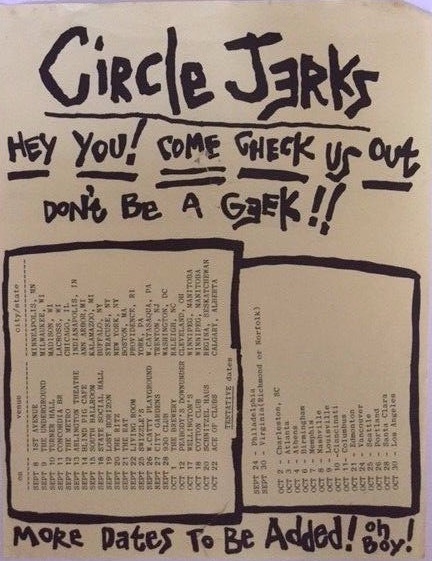 CIRCLE JERKS
HEY YOU! COME CHECK US OUT
DON'T BE A GEEK!!
on venue city/state
SEPT 8 1ST AVENUE MINNEAPOLIS, MN
SEPT 9 UNDERGROUND MILWAUKEE, WI
SEPT 10 TURNER HALL MADISON, WI
SEPT 11 CONCORDIA LACROSS, WI
SEPT 12 THE METRO CHICAGO, IL
SEPT 13 ARLINGTON THEATRE INDIANAPOLIS, IN
SEPT BLIND PIG CAFE ANN ARBOR, MI
SEPT 15 SOUTH BALLROOM KALAMAZOO, MI
SEPT STATE SOCIAL HALL BUFFALO, NY
SEPT 19 LOST HORIZON SYRACUSE, NY
SEPT 20 THE RITZ NEW YORK, NY
SEPT 21 THE RAT BOSTON, MA
SEPT 22 LIVING ROOM PROVIDENCE, RI
SEPT 25 SWIZZLES YORK, PA
SEPT 26 W.CATTY PLAYGROUND W.CATASAQUA, PA
SEPT 27 CITY GARDENS TRENTON, NJ
SEPT 28 930 CLUB WASHINGTON, DC
OCT 1 THE BREWERY RALEIGH, NC
OCT 12 PHANTASY DOWNUNDER CLEVELAND, OH
OCT 17 WELLINGTON'S WINNIPEG, MANITOBA
OCT 18 " WINNIPEG, MANITOBA
OCT 20 SCHNITZEL HAUS REGINA, SASKATCHEWAN
OCT 22 ACE OF CLUBS CALGARY, ALBERTA
TENTATIVE dates
SEPT 24 - Philadelphia
SEPT 30 - Virginia(Richmond or Norfolk)
OCT 2 - Charleston, SC
OCT 3 - Atlanta
OCT 4 - Athens
OCT 6 - Birmingham
OCT 7 - Memphis
OCT 8 - Nashville
OCT 9 - Louisville
OCT 10 - Cincinnati
OCT 11 - Columbus
OCT 21 - Edmonton
OCT 24 - Vancouver
OCT 25 - Seattle
OCT 26 - Portland
OCT 28 - Santa Clara
OCT 30 - Los Angeles
MORE DATES TO BE ADDED! OH BOY!